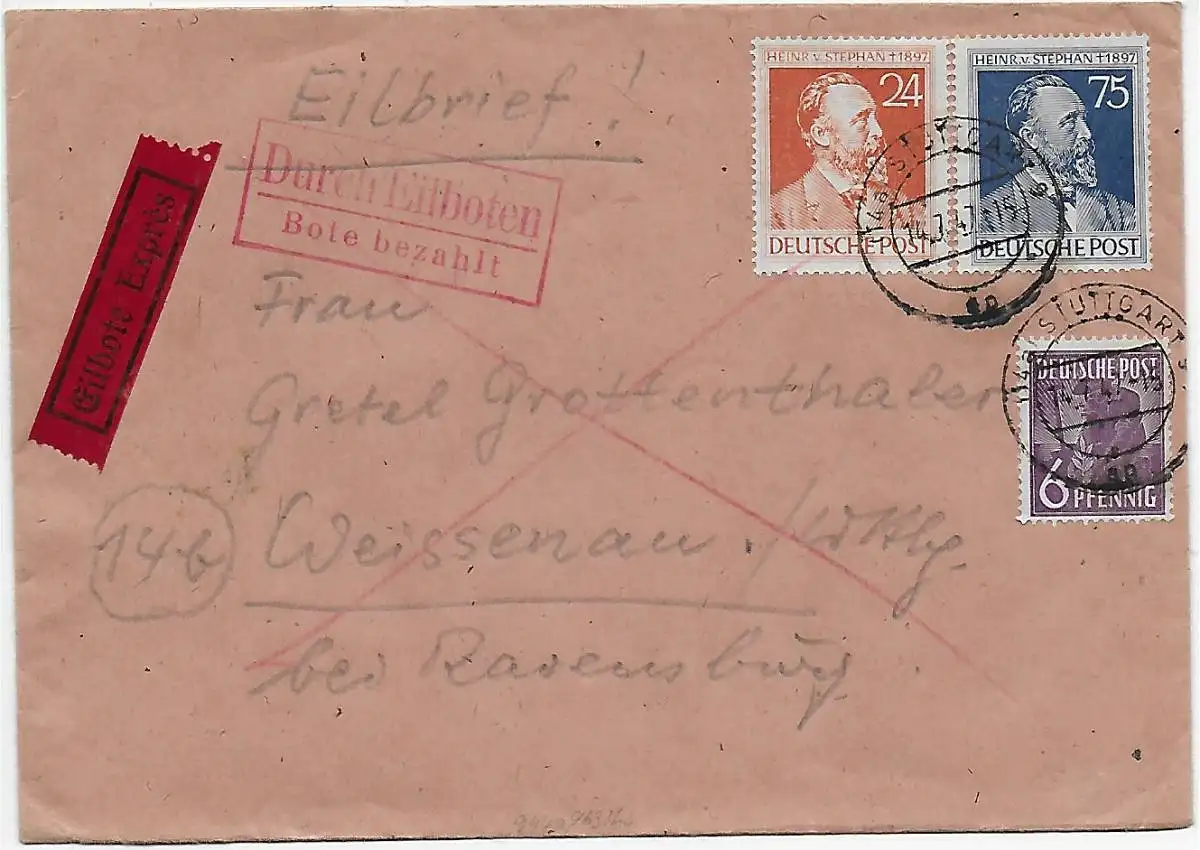 Eilbrief!
HEINR.v.STEPHAN †1897
24
DEUTSCHE POST
HEINR.v.STEPHAN †1897
75
DEUTSCHE POST
STUTTGART
14.7.47.-15
Eilbote Exprès
Durch Eilboten
Bote bezahlt
STUTTGART
DEUTSCHE POST
6 PFENNIG
Frau
Gretel Grottenthaler
14b Weissenau /Wttbg.
bei Ravensburg